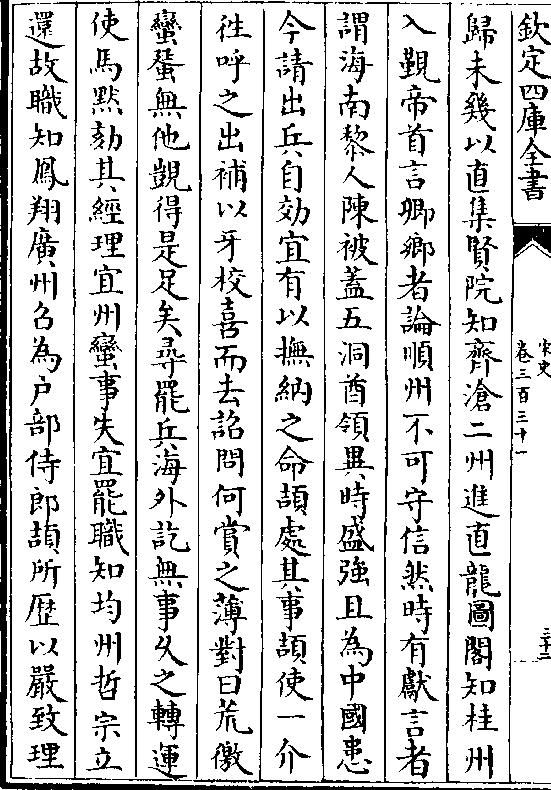 欽定四庫全書
宋史
卷三百三十一
三十二
歸未幾以直集賢院知齊滄二州進直龍圖閣知桂州
入覲帝首言卿鄉者論順州不可守信然時有獻言者
謂海南黎人陳被蓋五洞酋領異時盛強且為中國患
今請出兵自効宜有以撫納之命頡處其事頡使一介
徃呼之出補以牙校喜而去詔問何賞之薄對曰荒徼
蠻蜑無他覬得是足矣尋罷兵海外訖無事乆之轉運
使馬黙劾其經理宜州蠻事失宜罷職知均州哲宗立
還故職知鳳翔廣州召為户部侍郎頡所歴以嚴致理